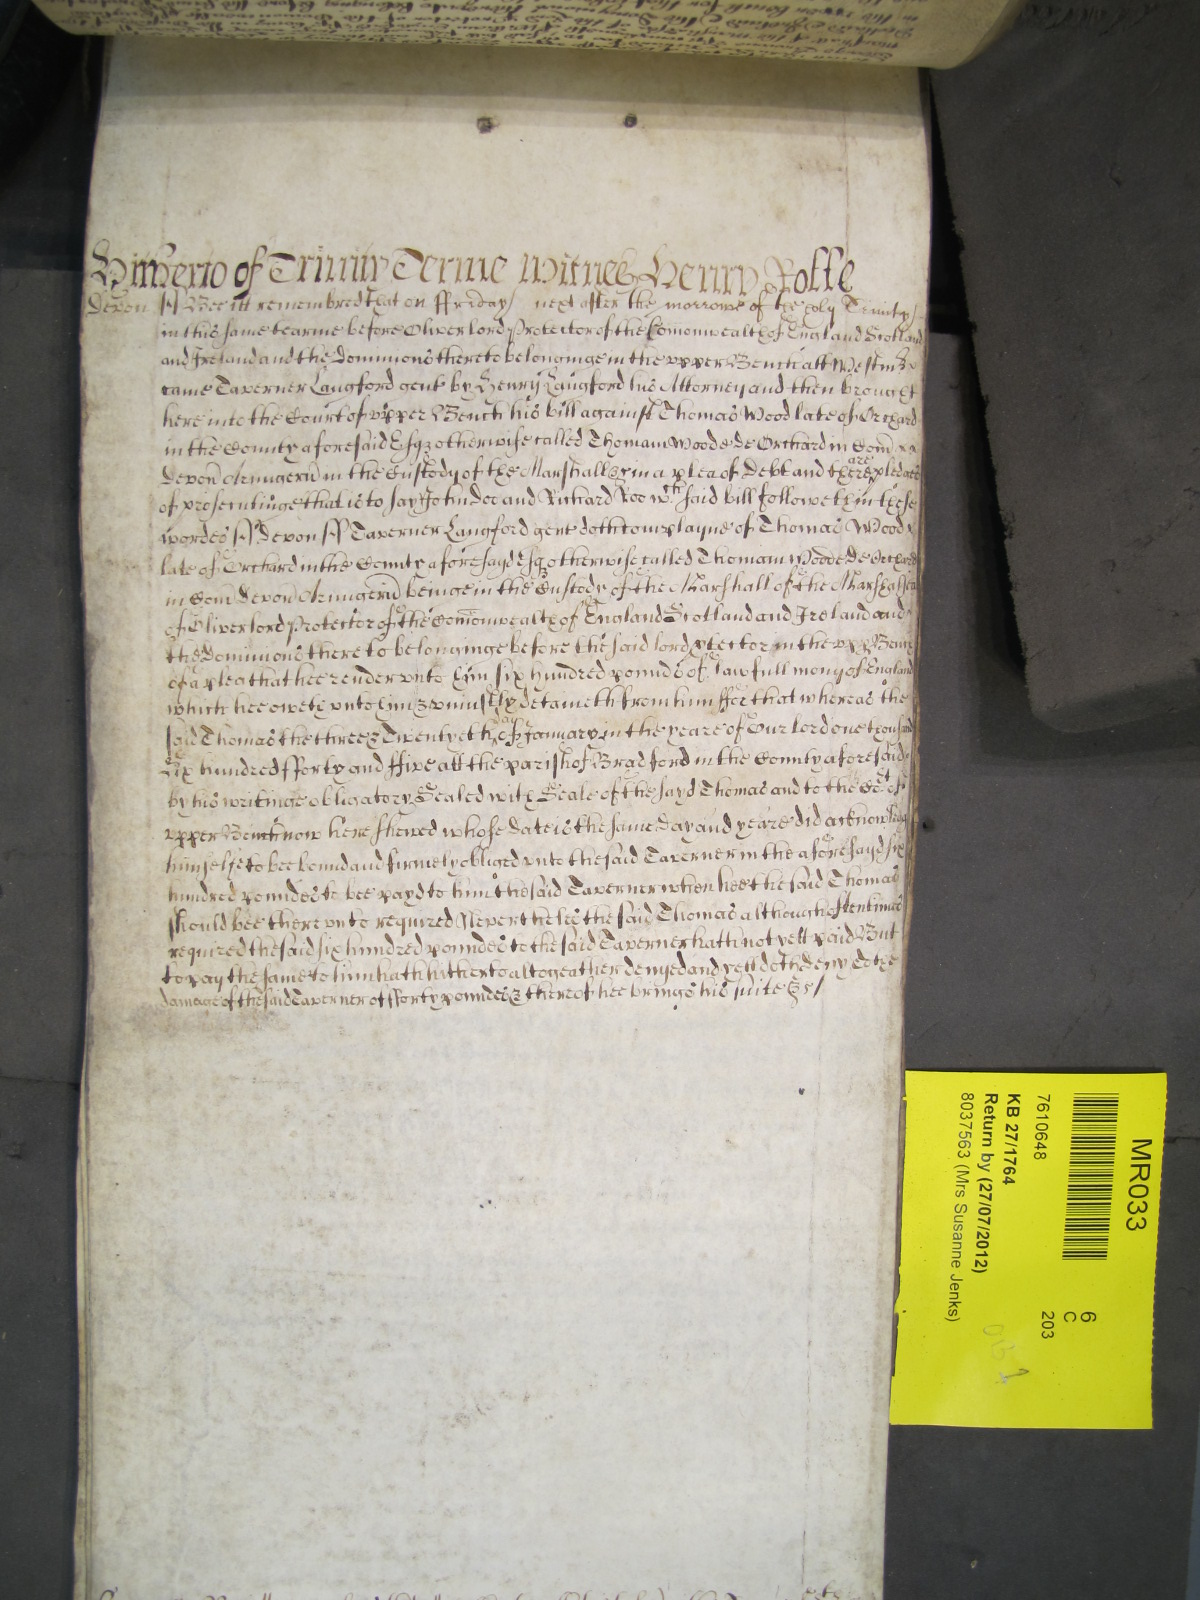 Hitherto of Trinity Terme Witnes Henry Rolle
Devon Bee itt remembred that on ffriday next after the morrowe of the holy Trinity
in this same tearme before Oliver lord Protector of the Comonwealth of England Scotland
and Ireland and the Dominions thereto belonginge in the upper Bench att Westm
came Taverner Langford gent by Henry Langford his Attorney and then brought
here into the Court of upper Bench his bill against Thomas Wood late of Orchard
in the County aforesaid Esq otherwise called Thomam Woode de Orchard in Com
Devon Armigerum in the Custody of the Marshall &c in a plea of Debt and there are pledges
of prosecutinge that is to say John Doe and Richard Roe wch said bill followeth in these
wordes Devon Taverner Langford gent doth complayne of Thomas Wood
late of Orchard in the County aforesayd Esq otherwise called Thomam Woode de Orchard
in Com Devon Armigerum beinge in the Custody of the Marshall of the Marshalsea
of Oliver lord Protector of the Comonwealth of England Scotland and Ireland and
the Dominions thereto belonginge before the said lord ptector in the upp Bench
of a plea that hee render unto him six hundred poundes of lawfull mony of England
which hee oweth unto him & uniustly detaineth from him ffor that whereas the
said Thomas the three & Twentyeth day of January in the yeare of Our lord one thousand
six hundred fforty and ffive att the parish of Bradford in the County aforesaid
by his writinge obligatory Sealed with Seale of the sayd Thomas and to the Ct of
upper Bench now here shewed whose date is the same day and yeare did acknowledg
himselfe to bee bound and firmely obliged unto the said Taverner in the aforesayd six
hundred poundes to bee payd to him the said Taverner when hee the said Thomas
should bee there unto required Nevertheles the said Thomas although oftentimes
required the said six hundred poundes to the said Taverner hath not yett paid But
to pay the same to him hath hitherto altogeather denyed and yett doth deny To the
damage of the said Taverner of fforty poundes & thereof hee brings his suite &c
MR033
6
C
203
7610648
KB 27/1764
Return by (27/07/2012)
8037563 (Mrs Susanne Jenks)